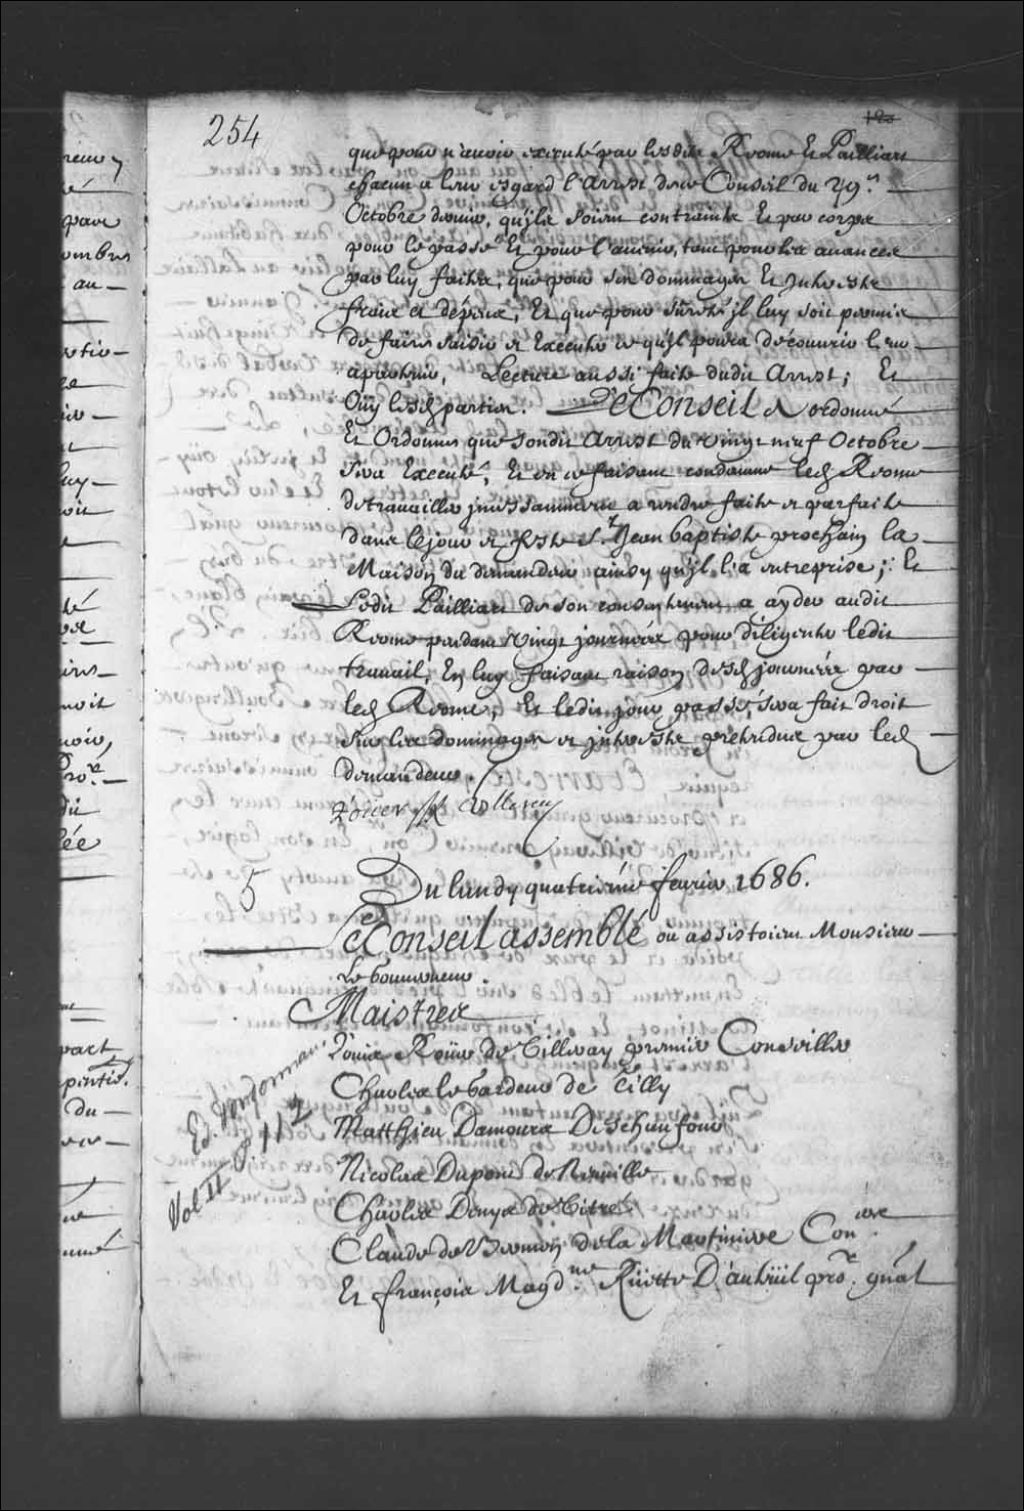 254
120
que pour n'auoir executé par lesdits Rvome Et Pailliart
chacun a leur esgard l'Arrest de ce Conseil du 29.e
Octobre dernier, qu'jls soient contraints Et par corps
pour le passé Et pour l'auenir, tant pour les auances
par luy faites, que pour ses dommages Et jnterests
fraix et dépens, Et que pour sûreté jl luy soit permis
de faire saisir et Executer ce qu'jl poura découurir leur
apartenir, Lecture aussi faite dudit Arrest; Et
Oüy lesd. parties. Le Conseil A ordonné
Et Ordonne que sondit Arrest du vingt neuf Octobre
sera Executé, Et en ce faisant condamne led. Rvome
de trauailler jncessamment a rendre faite et parfaite
dans le jour et feste St. Jean baptiste prochain la
Maison du demandeur ainsy qu'jl l'a entreprise; Et
Ledit Pailliart de son consentement a ayder audit
Rvome pendant vingt journées pour diligenter ledit
trauail, En luy faisant raison desd. journées par
led. Rvome, Et ledit jour passé, sera fait droit
sur les dommages et jnterests prétendus par led.
demandeur ./.
Roüer Villeray
5
Du lundy quatriéme feurier 1686.
Le Conseil assemblé ou assistoient Monsieur
Le Gouuerneur.
Maistres
Loüis Roüer de Villeray premier Conseiller
Charles le Gardeur de Tilly
Matthieu Damours Deschaufour
Nicolas Dupont de Neuuille
Charles Denys de Vitré
Claude de Bermen de la Martiniere Con.ers
Et François Magd.ne Rüette D'auteüil pro.r gnãl
Ed.
Vol II p 112